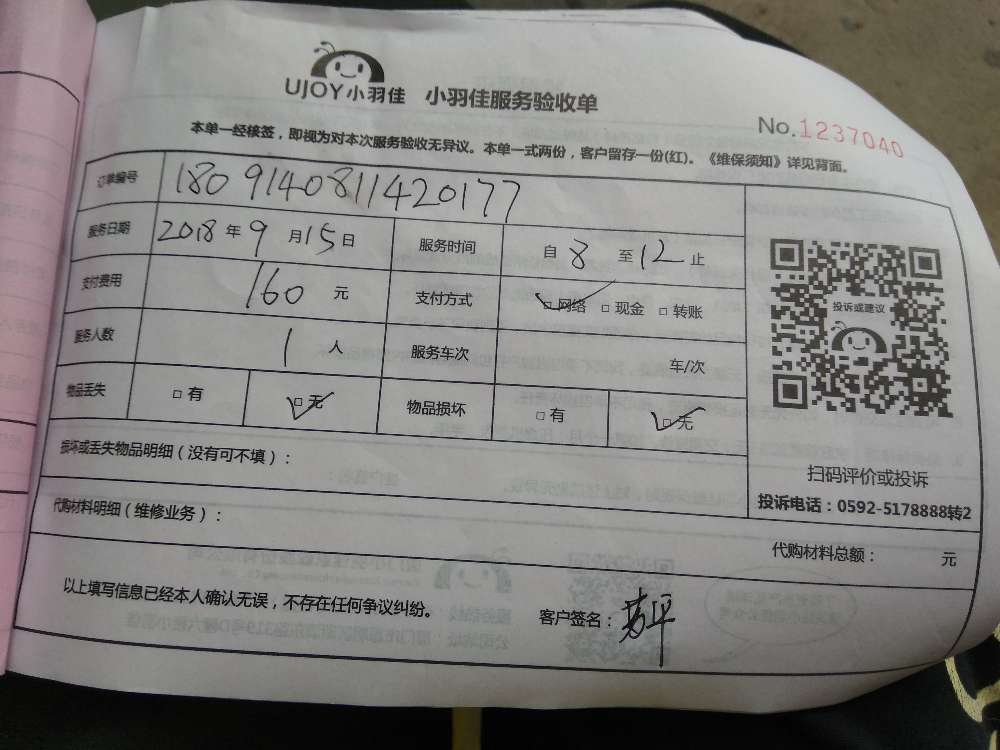 UJOY小羽佳 小羽佳服务验收单
No.1237040
本单一经核签，即视为对本次服务验收无异议。本单一式两份，客户留存一份(红)。《维保须知》详见背面。
订单编号 1809140811420177
服务日期 2018年9月15日 服务时间 自8至12止
支付费用 160元 支付方式 □网络 □现金 □转账
投诉或建议
服务人数 1人 服务车次 车/次
物品丢失 □有 □无 物品损坏 □有 □无
损坏或丢失物品明细（没有可不填）：
扫码评价或投诉
投诉电话：0592-5178888转2
代购材料明细（维修业务）：
代购材料总额： 元
以上填写信息已经本人确认无误，不存在任何争议纠纷。 客户签名：